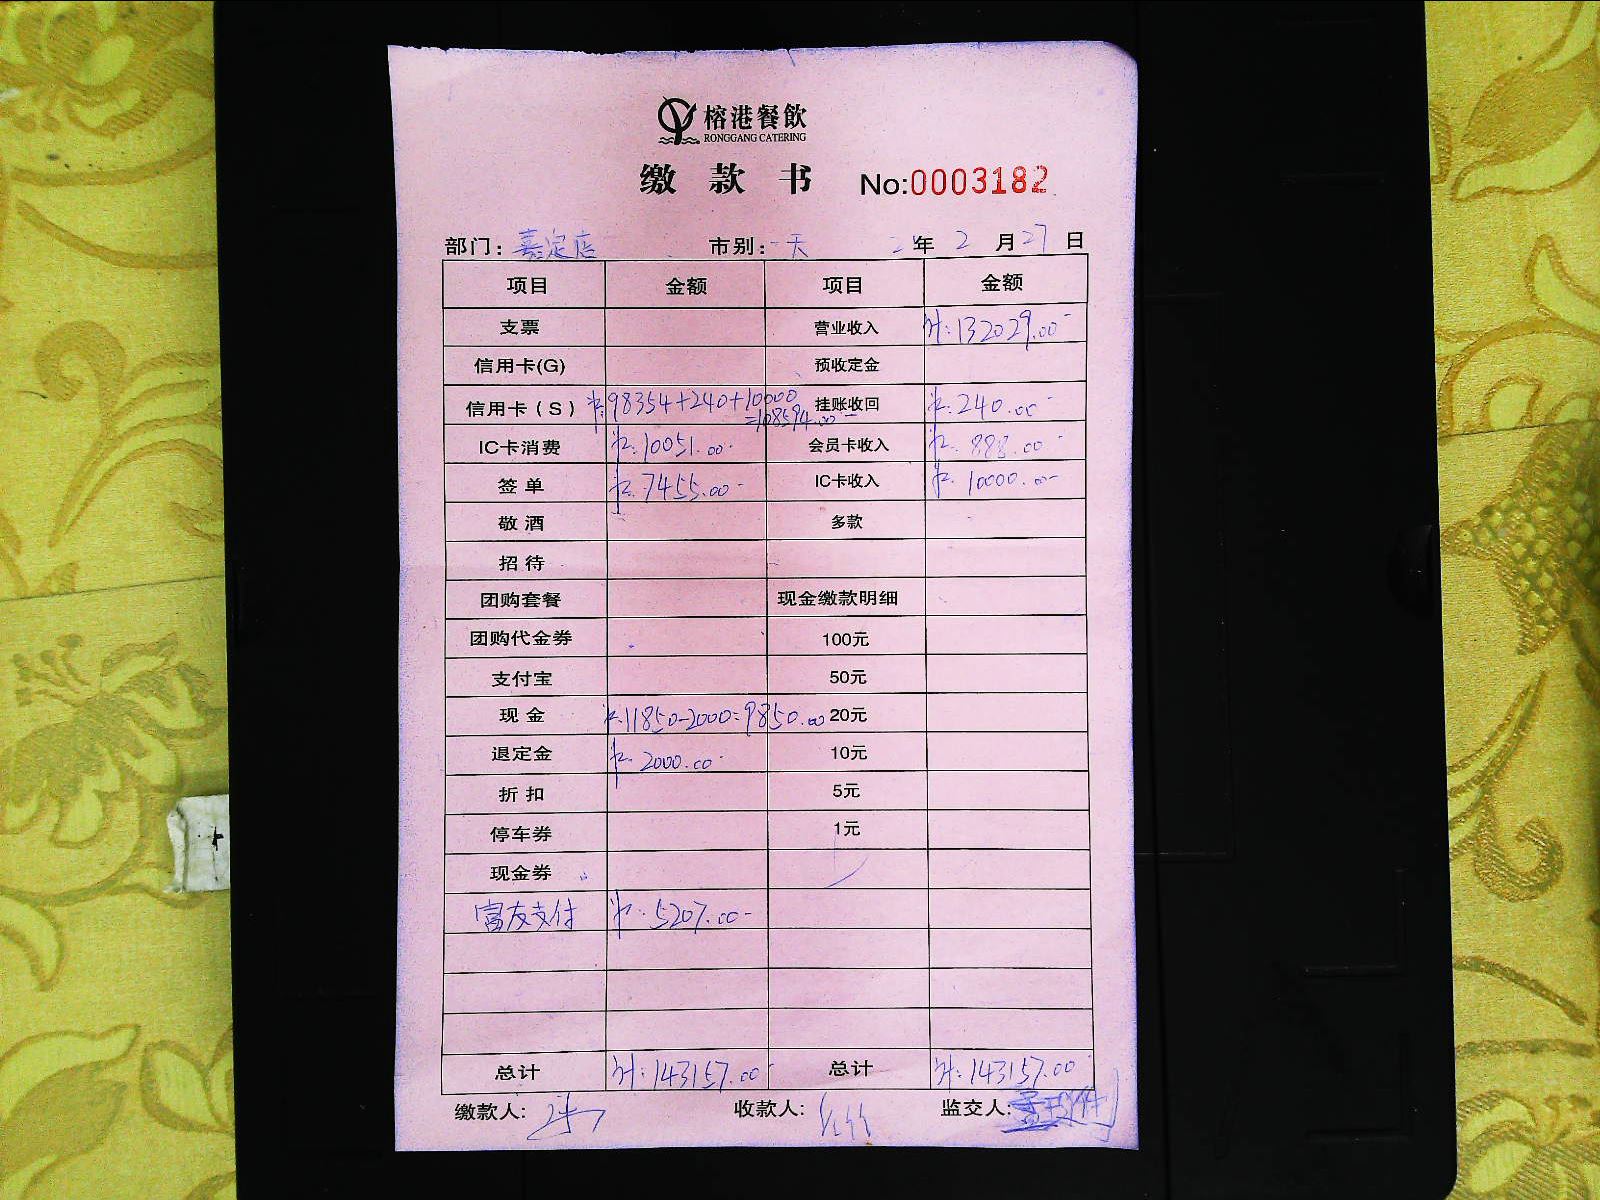 榕港餐飲
RONGGANG CATERING
缴款书 No:0003182
部门：嘉定店 市别：一天 21年2月27日
项目 金额 项目 金额
支票 营业收入 计:132029.00
信用卡(G) 预收定金
信用卡（S） ¥:98354+240+10000=108594.00 挂账收回 ¥:240.00
IC卡消费 ¥:10051.00 会员卡收入 ¥:888.00
签单 ¥:7455.00 IC卡收入 ¥:10000.00
敬酒 多款
招待
团购套餐 现金缴款明细
团购代金券 100元
支付宝 50元
现金 ¥:11850-2000=9850.00 20元
退定金 ¥:2000.00 10元
折扣 5元
停车券 1元
现金券
富友支付 ¥:5207.00
总计 计:143157.00 总计 计:143157.00
缴款人: 收款人: 监交人: